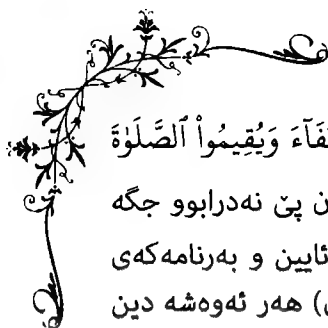 وَيُقِيمُواْ ٱلصَّلَوٰةَ
پێ نەدرابوو جگە
ئایین و بەرنامەکەی
هەر ئەوەشە دین